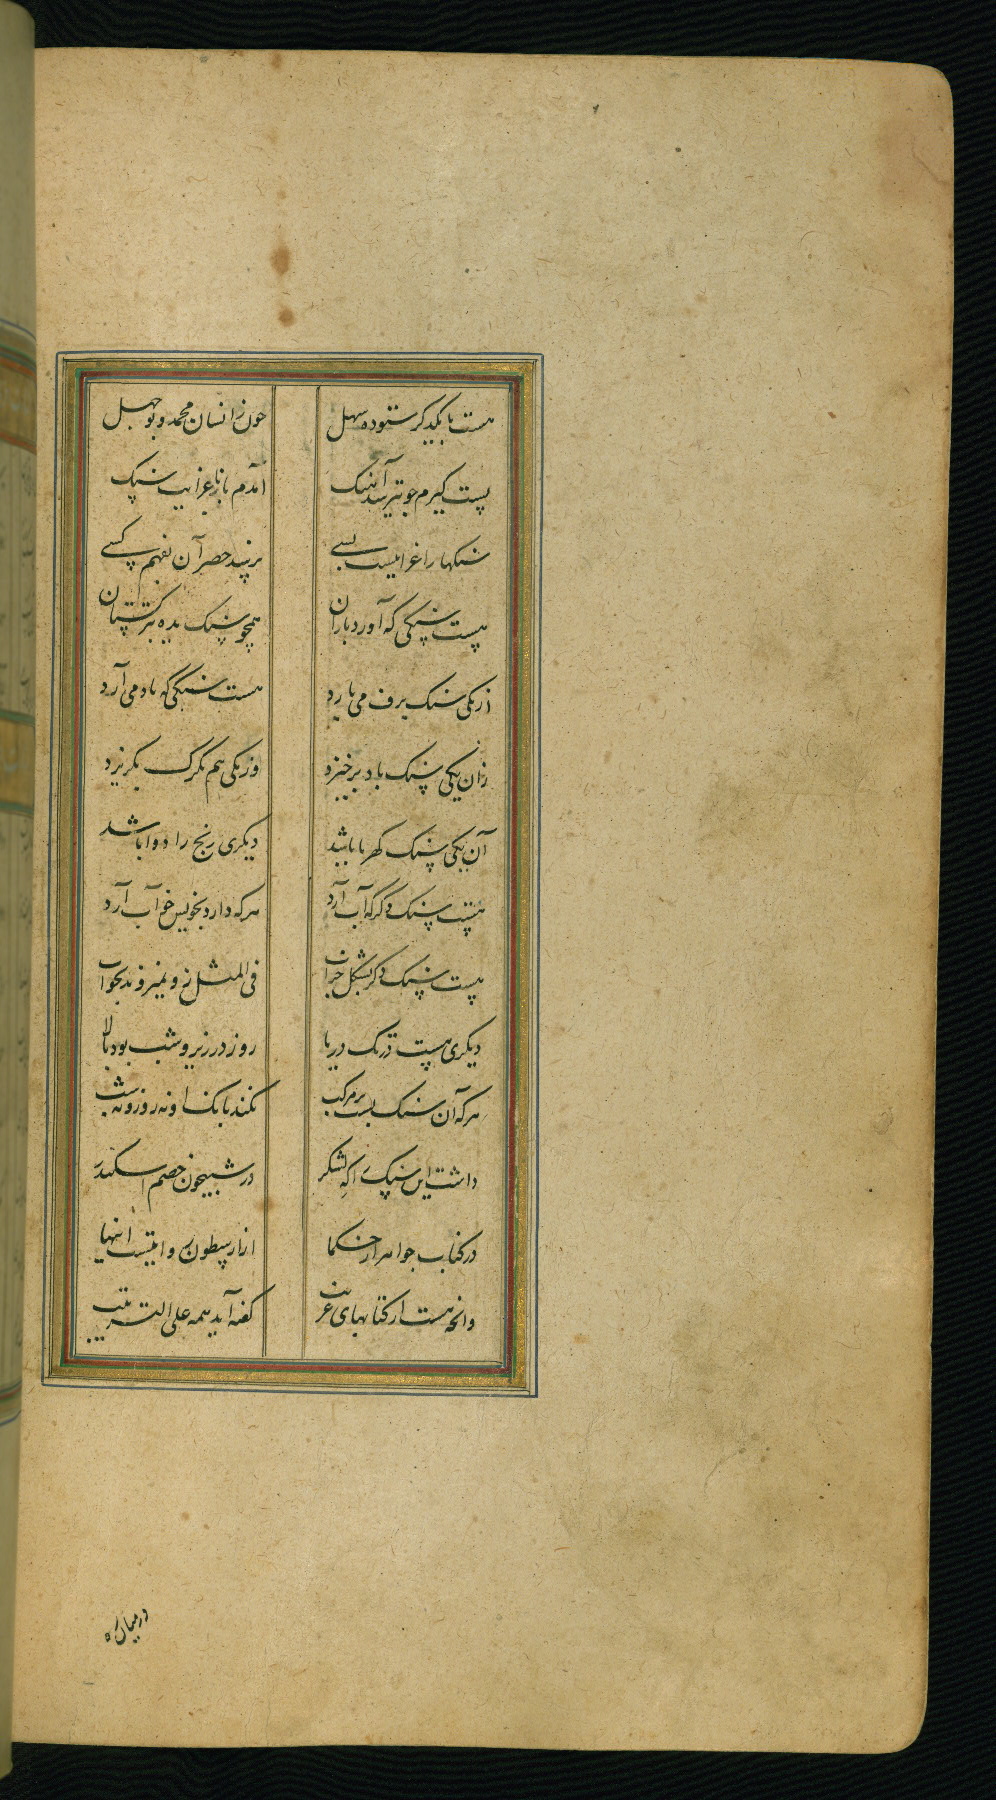 هست با یکدیگر ستوده سهل چون ز انسان محمد و بوجهل
پست گیرم چو تیر بد آهنک آمدم باز با غرایب سنک
سنکها را غرایبست بسے نرسد حصر آن بفهم کسے
هست سنکی که آورد باران همچو سنک یده بترکستان
از یکی سنک برف می بارد هست سنکی که باد می آرد
زان یکی سنک باد برخیزد وز یکی هم تکرک بکریزد
آن یکی سنک کهربا باشد دیکری رنج را دوا باشد
هست سنک دکر که آب آرد هر که دارد بخویش خواب آرد
هست سنک دکر بشکل فی المثل نمیرود بخواب
دیکری هست در تک دریا روز در زیر و شب بود بالا
هر که آن سنک بست بر مرکب نکند بانک او نه روز و نه شب
داشت این سنک اکه لشکر در شبیخون خصم اسکندر
در کتاب جواهر از حکما از ارسطون روایتست اینها
وانچه هست از کتابهای غریب کفته آید همه علی الترتیب
در میان